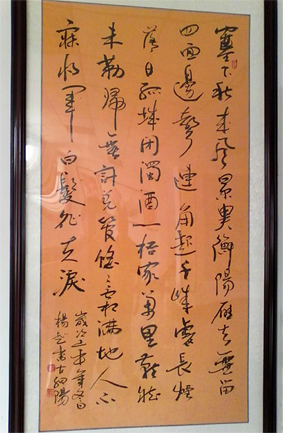 塞下秋来風景異衡陽雁去無留
四面邊聲連角起千嶂裏長煙
落日孤城閉濁酒一杯家萬里燕然
未勒歸無計羌管悠悠霜滿地人不
寐将軍白髮征夫淚
歲次乙未年冬日
楊書古陽